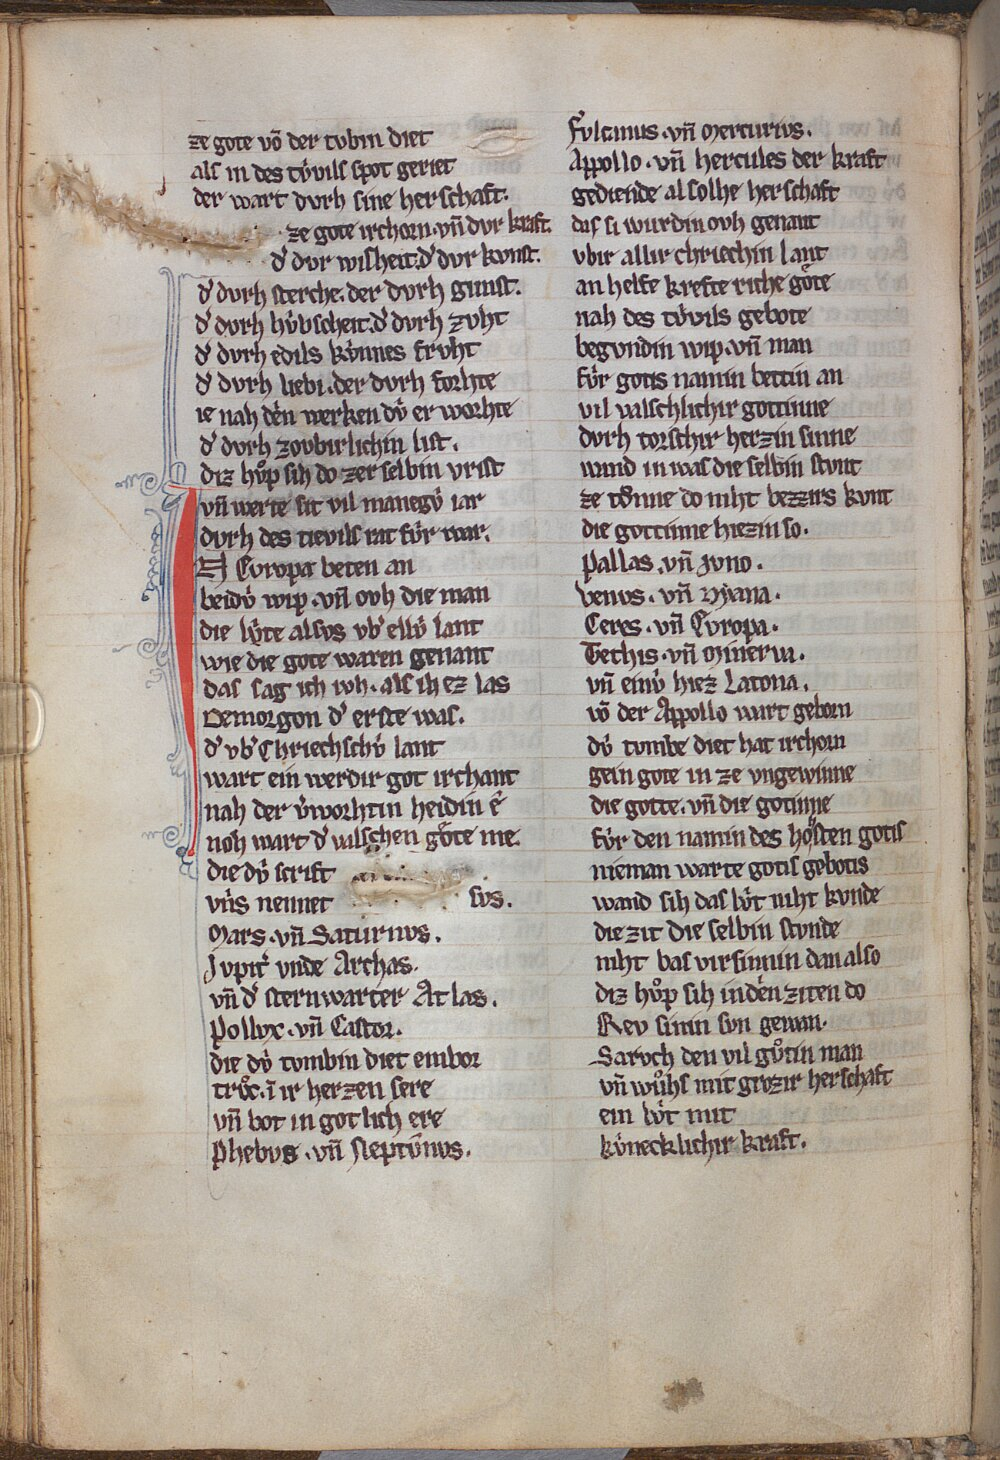 ze gote võ der tvbin diet
als in des tv́vils spot geriet
der wart dvrh sine herschaft.
ze gote irchorn. vn̄ dvr kraft.
d' dvr wisheit. d' dvr kvnst.
d' dvrh sterche. der dvrh gunst.
d' dvrh hv́bscheit. d' dvrh zvht
d' dvrh edils kv́nnes frvht
d' dvrh liebi. der dvrh forhte
ie nah dèn werken dv́ er worhte
d' dvrh zovbirlichin list.
diz hv̊p sih do zer selbin vrist
vn̄ werte sit vil manegv́ iar
dvrh des tievils rat fv́r war.
In Evropa beten an
beidv́ wip. vn̄ ovh die man
die lv́te alsvs vb' ellv́ lant
wie die gote waren genant
das sag ich ivh. als ih ez las
Demorgon d' erste was.
d' vb' Chriechschv́ lant
wart ein werdir got irchant
nah der v'worhtin heidin ê
noh wart d' valschen gŏte me.
die dv́ scrift
vns nennet svs.
Mars. vn̄ Saturnvs.
Jvpit' vnde Archas.
vn̄ d' sternwarter Atlas.
Pollvx. vn̄ Castor.
die dv́ tvmbin diet embor
trv̊c. ī ir herzen sere
vn̄ bot in gotlich ere
Phebvs. vn̄ Neptv́nvs.
Fvlcanus. vn̄ Mercurivs.
Appollo. vn̄ hercules der kraft
gediende al solhe herschaft
das si wurdin ovh genant
vbir allir chriechin lant
an helfe krefte riche gŏte
nah des tv́vils gebote
begvndin wip. vn̄ man
fv́r gotis namin bettin an
vil valschlichir gottinne
dvrh torschir herzin sinne
wand in was die selbin stvnt
ze tv̊nne do niht bezzirs kvnt
die gottinne hiezin so.
Pallas. vn̄ Jvno.
Venvs. vn̄ Dyana.
Ceres. vn̄ Evropa.
Tethis. vn̄ Minerva.
vn̄ einv́ hiez Latona.
võ der Appollo wart geborn
dv́ tvmbe diet hat irchorn
gein gote in ze vngewinne
die gotte. vn̄ die gotinne
fv́r den namin des hŏsten gotis
nieman warte gotis gebotis
wand sih das lv́t niht kvnde
die zit die selbin stvnde
niht bas virsinnin dan also
diz hv̊p sih in dèn ziten do
Rev sinin svn gewan.
Sarvch den vil gv̊tin man
vn̄ wv̊hs mit grozir herschaft
ein lv́t mit
kv́necklichir kraft.